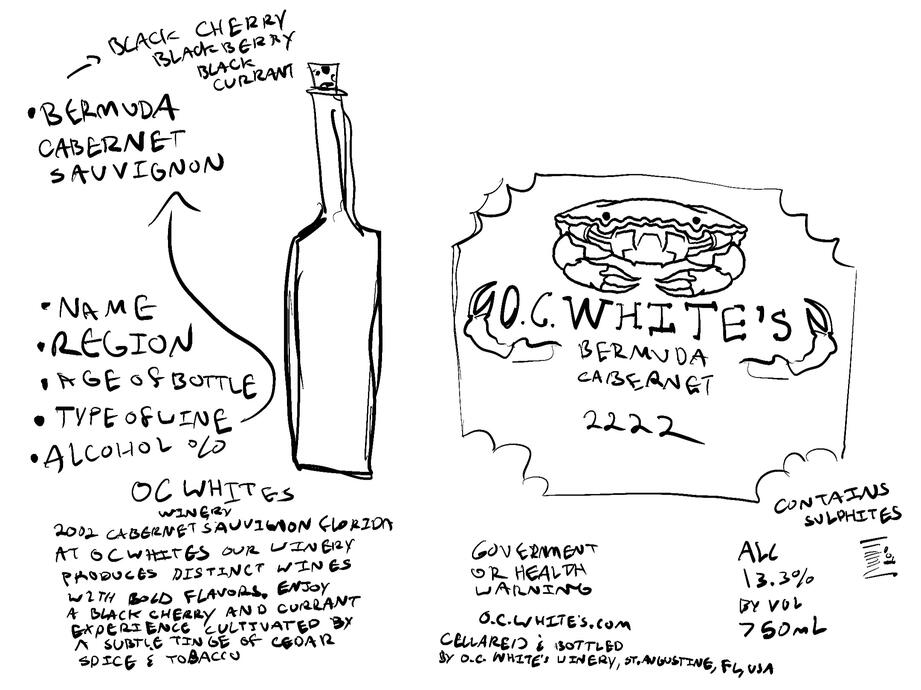 BLACK CHERRY
BLACKBERRY
BLACK
CURRANT
• BERMUDA
CABERNET
SAUVIGNON
• NAME
• REGION
• AGE OF BOTTLE
• TYPE OF WINE
• ALCOHOL %
OC WHITES
WINERY
2002 CABERNET SAUVIGNON FLORIDA
AT OC WHITES OUR WINERY
PRODUCES DISTINCT WINES
WITH BOLD FLAVORS. ENJOY
A BLACK CHERRY AND CURRANT
EXPERIENCE CULTIVATED BY
A SUBTLE TINGE OF CEDAR
SPICE & TOBACCO
O.C. WHITE'S
BERMUDA
CABERNET
2222
CONTAINS
SULPHITES
GOVERNMENT
OR HEALTH
WARNING
ALC
13.3%
BY VOL
750mL
O.C.WHITE'S.COM
CELLARED & BOTTLED
BY O.C. WHITE'S WINERY, ST. AUGUSTINE, FL, USA